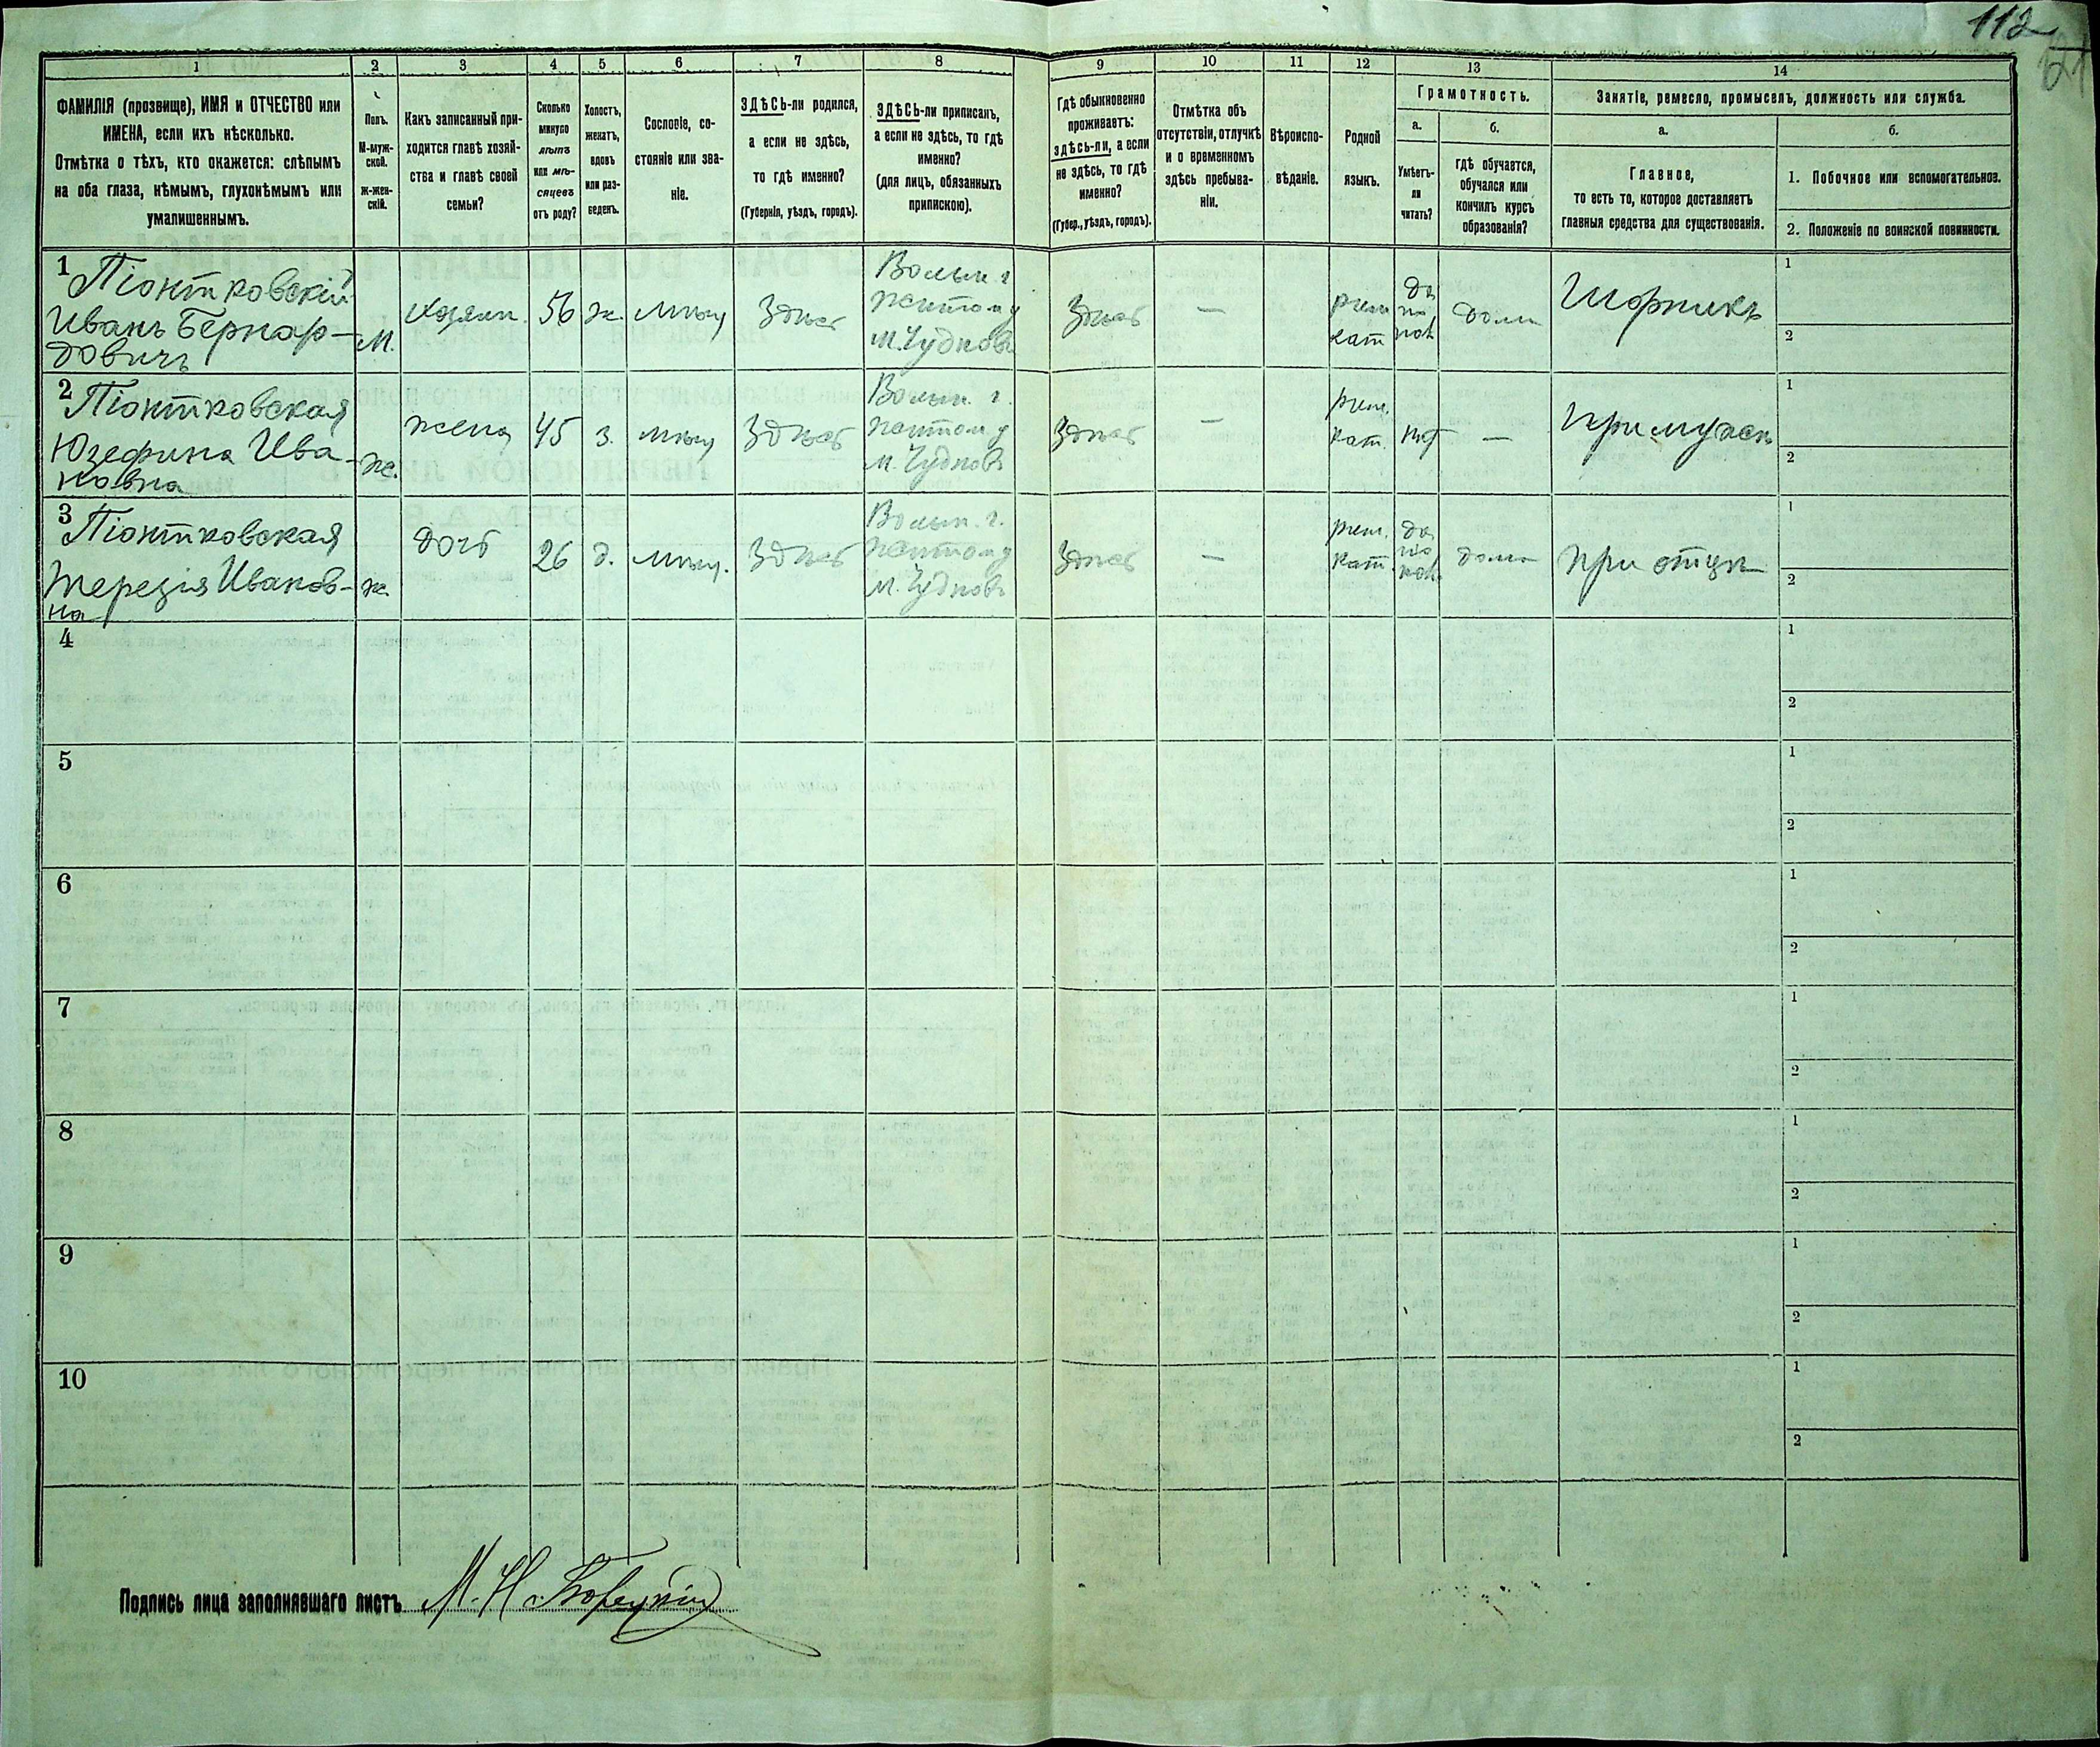 112
1 2 3 4 5 6 7 8 9 10 11 12 13 14
ФАМИЛІЯ (прозвище), ИМЯ и ОТЧЕСТВО или
ИМЕНА, если ихъ нѣсколько.
Отмѣтка о тѣхъ, кто окажется: слѣпымъ
на оба глаза, нѣмымъ, глухонѣмымъ или
умалишеннымъ.
Полъ.
М-муж-
ской.
ж-жен-
скій.
Какъ записанный при-
ходится главѣ хозяй-
ства и главѣ своей
семьи?
Сколько
минуло
лѣтъ
или мѣ-
сяцевъ
отъ роду?
Холостъ,
женатъ,
вдовъ
или раз-
веденъ.
Сословіе, со-
стояніе или зва-
ніе.
ЗДѢСЬ-ли родился,
а если не здѣсь,
то гдѣ именно?
(Губернія, уѣздъ, городъ).
ЗДѢСЬ-ли приписан,
а если не здѣсь, то гдѣ
именно?
(для лицъ, обязанныхъ
припискою).
Гдѣ обыкновенно
проживаетъ:
здѣсь-ли, а если
не здѣсь, то гдѣ
именно?
(Губер., уѣздъ, городъ).
Отмѣтка объ
отсутствіи, отлучкѣ
и о временномъ
здѣсь пребыва-
ніи.
Вѣроиспо-
вѣданіе.
Родной
языкъ.
Грамотность.
а.
Умѣетъ-
ли
читать?
б.
гдѣ обучается,
обучался или
кончилъ курсъ
образованія?
Занятіе, ремесло, промыселъ, должность или служба.
а.
Главное,
то есть то, которое доставляетъ
главныя средства для существованія.
б.
1. Побочное или вспомогательное.
2. Положеніе по воинской повинности.
1
Піонтковскій
Иванъ Бернар-
довичъ
М.
хозяин.
56
ж.
мѣщ
Здѣсь
Волын. г
житом у
м. Чудновъ
Здѣсь
—
рим
кат
да
по
пол
дома
Шорникъ
1
2
2
Піонтковская
Юзефина Ива-
новна
ж.
жена
45
з.
мѣщ
Здѣсь
Волын. г.
житом у
м. Чудновъ
Здѣсь
—
рим.
кат.
нѣт
—
При мужѣ
1
2
3
Піонтковская
Терезія Иванов-
на
ж
дочь
26
д.
мѣщ.
Здѣсь
Волын. г.
житом у
м. Чудновъ
Здѣсь
—
рим.
кат.
да
по
пол
дома
При отцѣ
1
2
4
1
2
5
1
2
6
1
2
7
1
2
8
1
2
9
1
2
10
1
2
Подпись лица заполнявшаго листъ М. Н.